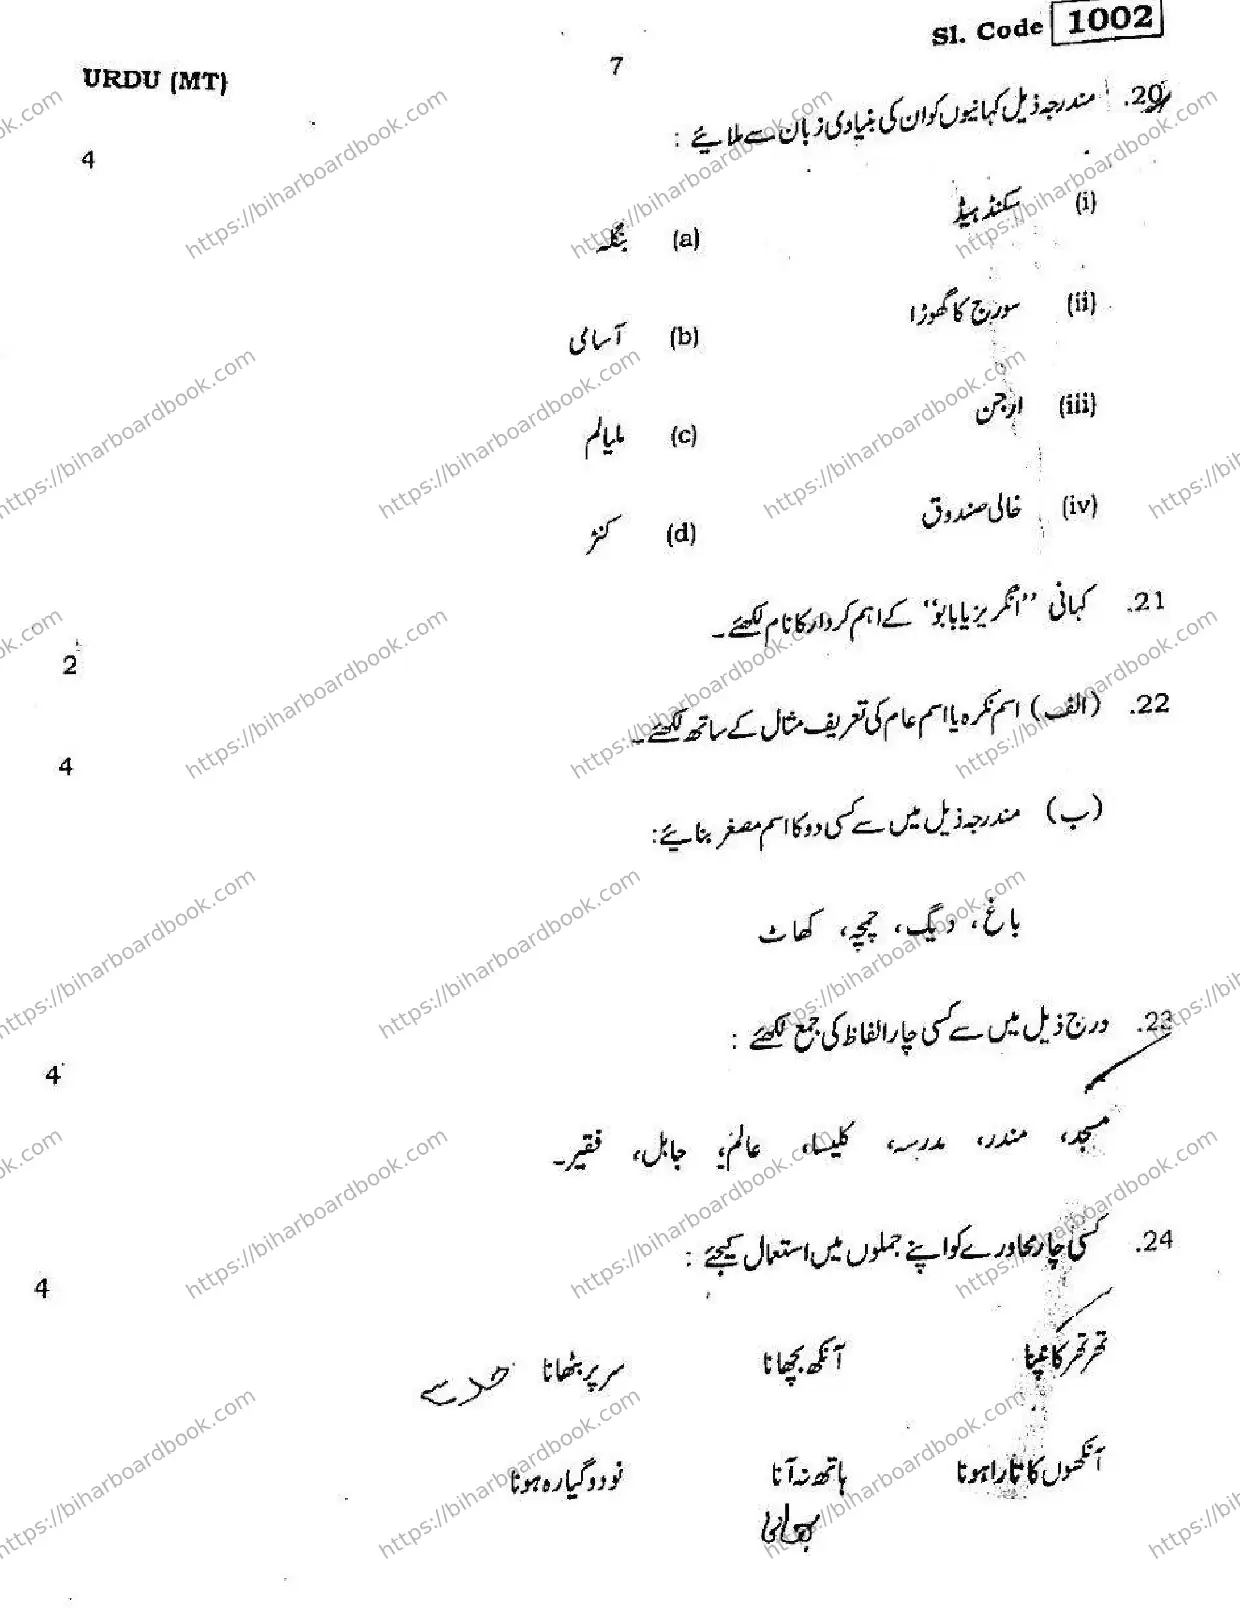 Sl. Code 1002
URDU (MT)
7
20. مندرجہ ذیل کہانیوں کو ان کی بنیادی زبان سے ملایئے :
4
(i) سکنڈ ہیڈ
(a) بنگلہ
(ii) سورج کا گھوڑا
(b) آسامی
(iii) ارجن
(c) ملیالم
(iv) خالی صندوق
(d) کنڑ
21. کہانی "انگریز یا بابو" کے اہم کردار کا نام لکھئے۔
2
22. (الف) اسم نکرہ یا اسم عام کی تعریف مثال کے ساتھ لکھئے۔
4
(ب) مندرجہ ذیل میں سے کسی دو کا اسم مصغر بنایئے:
باغ، دیگ، چمچہ، کھاٹ
23. درج ذیل میں سے کسی چار الفاظ کی جمع لکھئے :
4
مسجد، مندر، مدرسہ، کلیسا، عالم، جاہل، فقیر۔
24. کسی چار محاورے کو اپنے جملوں میں استعمال کیجئے :
4
تھر تھر کانپنا آنکھ بچھانا سر پر بٹھانا
آنکھوں کا تارا ہونا ہاتھ نہ آنا نو دو گیارہ ہونا
https://biharboardbook.com